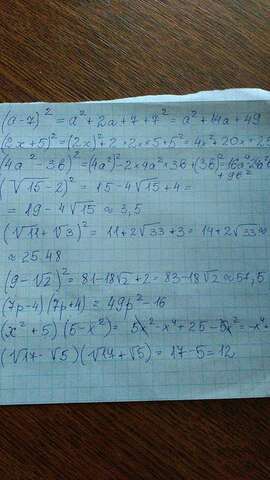 (a-7)² = a²+2a+7+7² = a²+14a+49
(2x+5)² = (2x)²+2·2x·5+5² = 4x²+20x+2
(4a²-3b)² = (4a²)²-2×4a²×3b+(3b)²=16a⁴-24a²b
+9b²
(√15-2)² = 15-4√15+4=
= 19-4√15 ≈ 3,5
(√11+√3)² = 11+2√33+3=14+2√33≈
≈ 25.48
(9-√2)² = 81-18√2+2=83-18√2≈57,5
(7p-4)(7p+4) = 49p²-16
(x²+5)(5-x²)= 5x²-x⁴+25-5x²=-x⁴
(√17-√5)(√17+√5) = 17-5=12